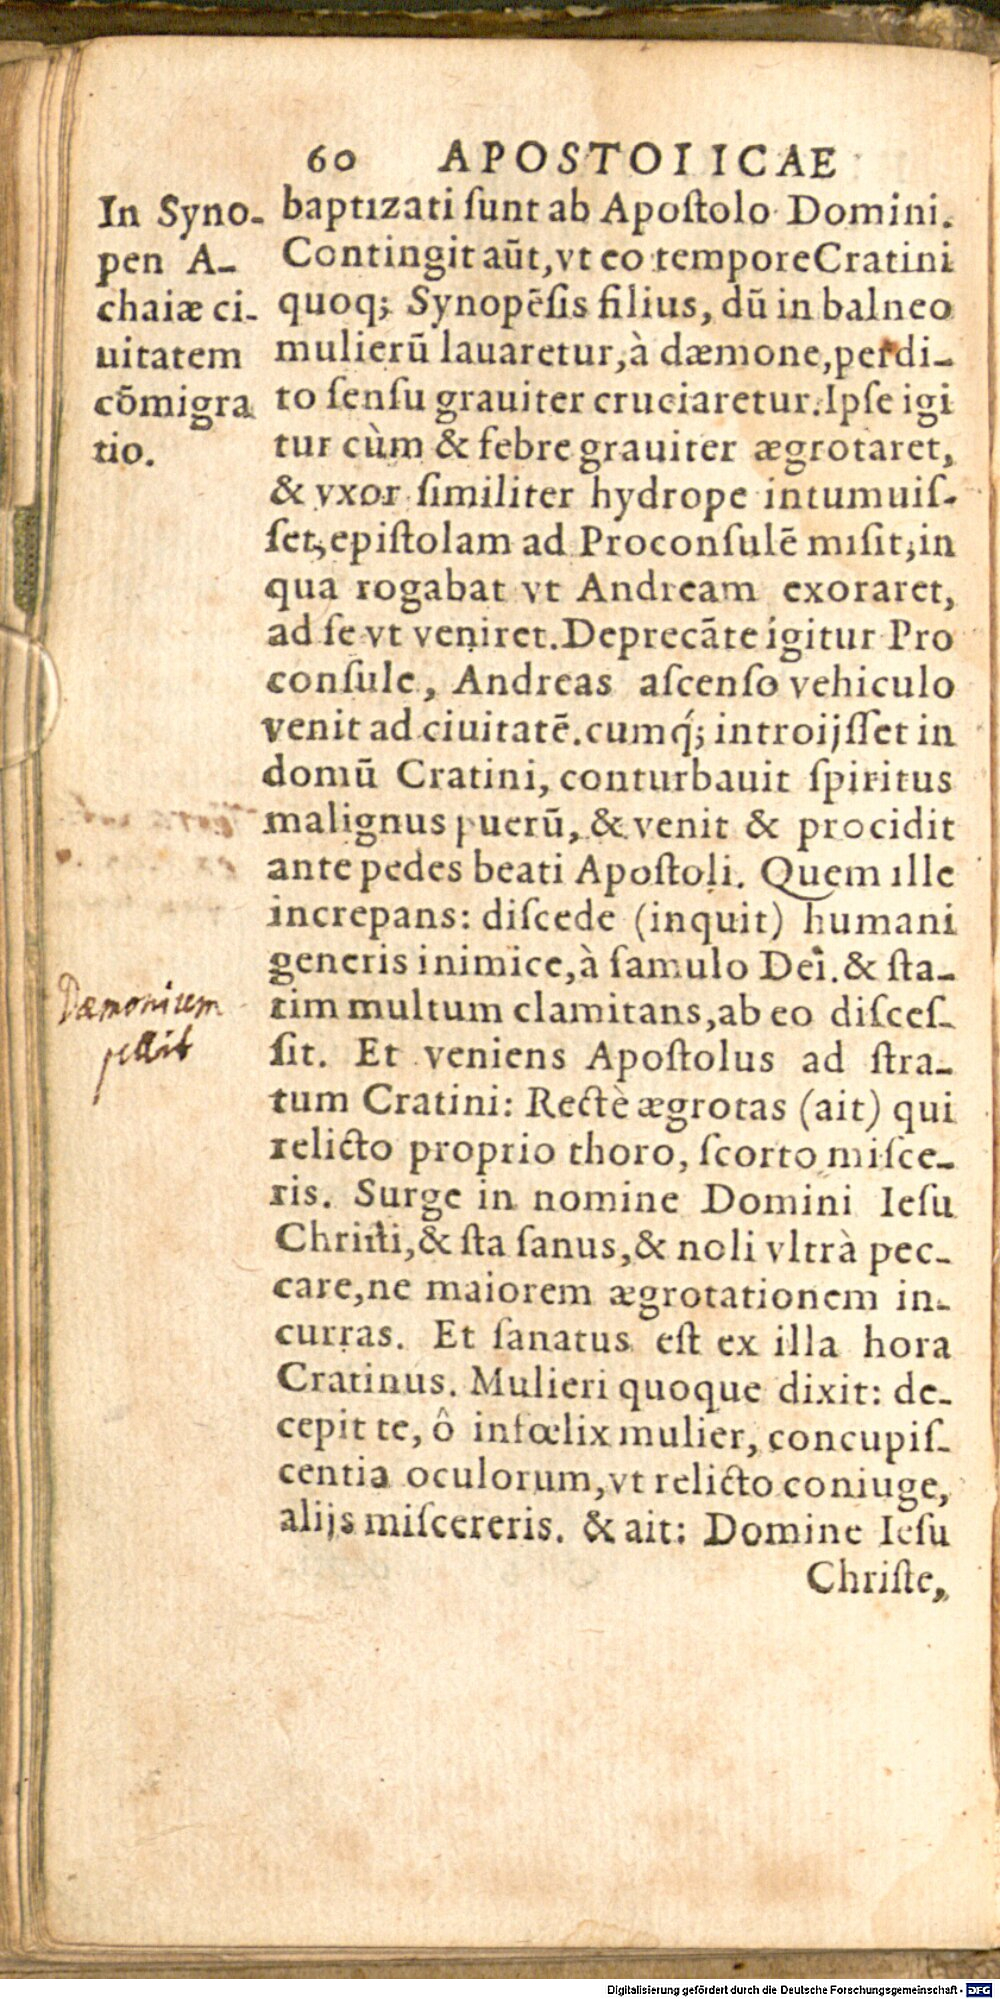 60 APOSTOLICAE
In Syno-
pen A-
chaiæ ci-
uitatem
cõmigra
tio.
baptizati ſunt ab Apoſtolo Domini.
Contingit aũt, vt eo tempore Cratini
quoq; Synopẽſis filius, dũ in balneo
mulierũ lauaretur, à dæmone, perdi-
to ſenſu grauiter cruciaretur. Ipſe igi
tur cùm & febre grauiter ægrotaret,
& vxor ſimiliter hydrope intumuiſ-
ſet, epiſtolam ad Proconſulẽ miſit, in
qua rogabat vt Andream exoraret,
ad ſe vt veniret. Deprecãte igitur Pro
conſule, Andreas aſcenſo vehiculo
venit ad ciuitatẽ. cumq́; introijſſet in
domũ Cratini, conturbauit ſpiritus
malignus puerũ, & venit & procidit
ante pedes beati Apoſtoli. Quem ille
increpans: diſcede (inquit) humani
generis inimice, à famulo Dei. & ſta-
tim multum clamitans, ab eo diſceſ-
ſit. Et veniens Apoſtolus ad ſtra-
tum Cratini: Rectè ægrotas (ait) qui
relicto proprio thoro, ſcorto miſce-
ris. Surge in nomine Domini Ieſu
Chriſti, & ſta ſanus, & noli vltrà pec-
care, ne maiorem ægrotationem in-
curras. Et ſanatus eſt ex illa hora
Cratinus. Mulieri quoque dixit: de-
cepit te, ô infœlix mulier, concupiſ-
centia oculorum, vt relicto coniuge,
alijs miſcereris. & ait: Domine Ieſu
Chriſte,
Dæmonium
pellit
Digitalisierung gefördert durch die Deutsche Forschungsgemeinschaft - DFG